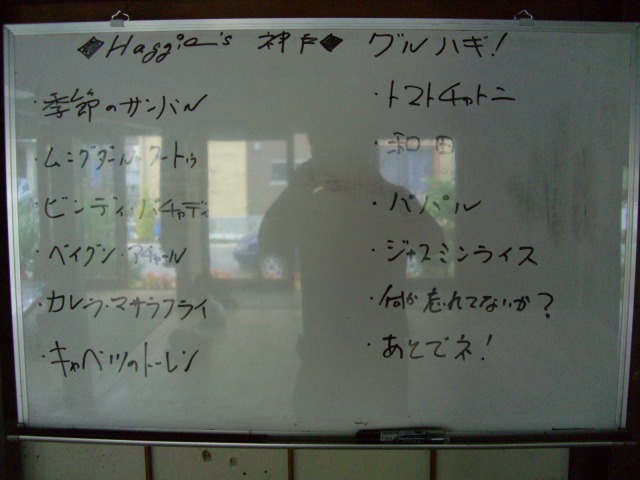 ◆Haggie's 神戸◆ グルハギ!
・季節のサンバル
・ムングダール・クートゥ
・ビンディ・パチャディ
・ベイグン・アチャール
・カレラ・マサラフライ
・キャベツのトーレン
・トマトチャトニ
・和田
・パパル
・ジャスミンライス
・何か忘れてないか?
・あとでネ!